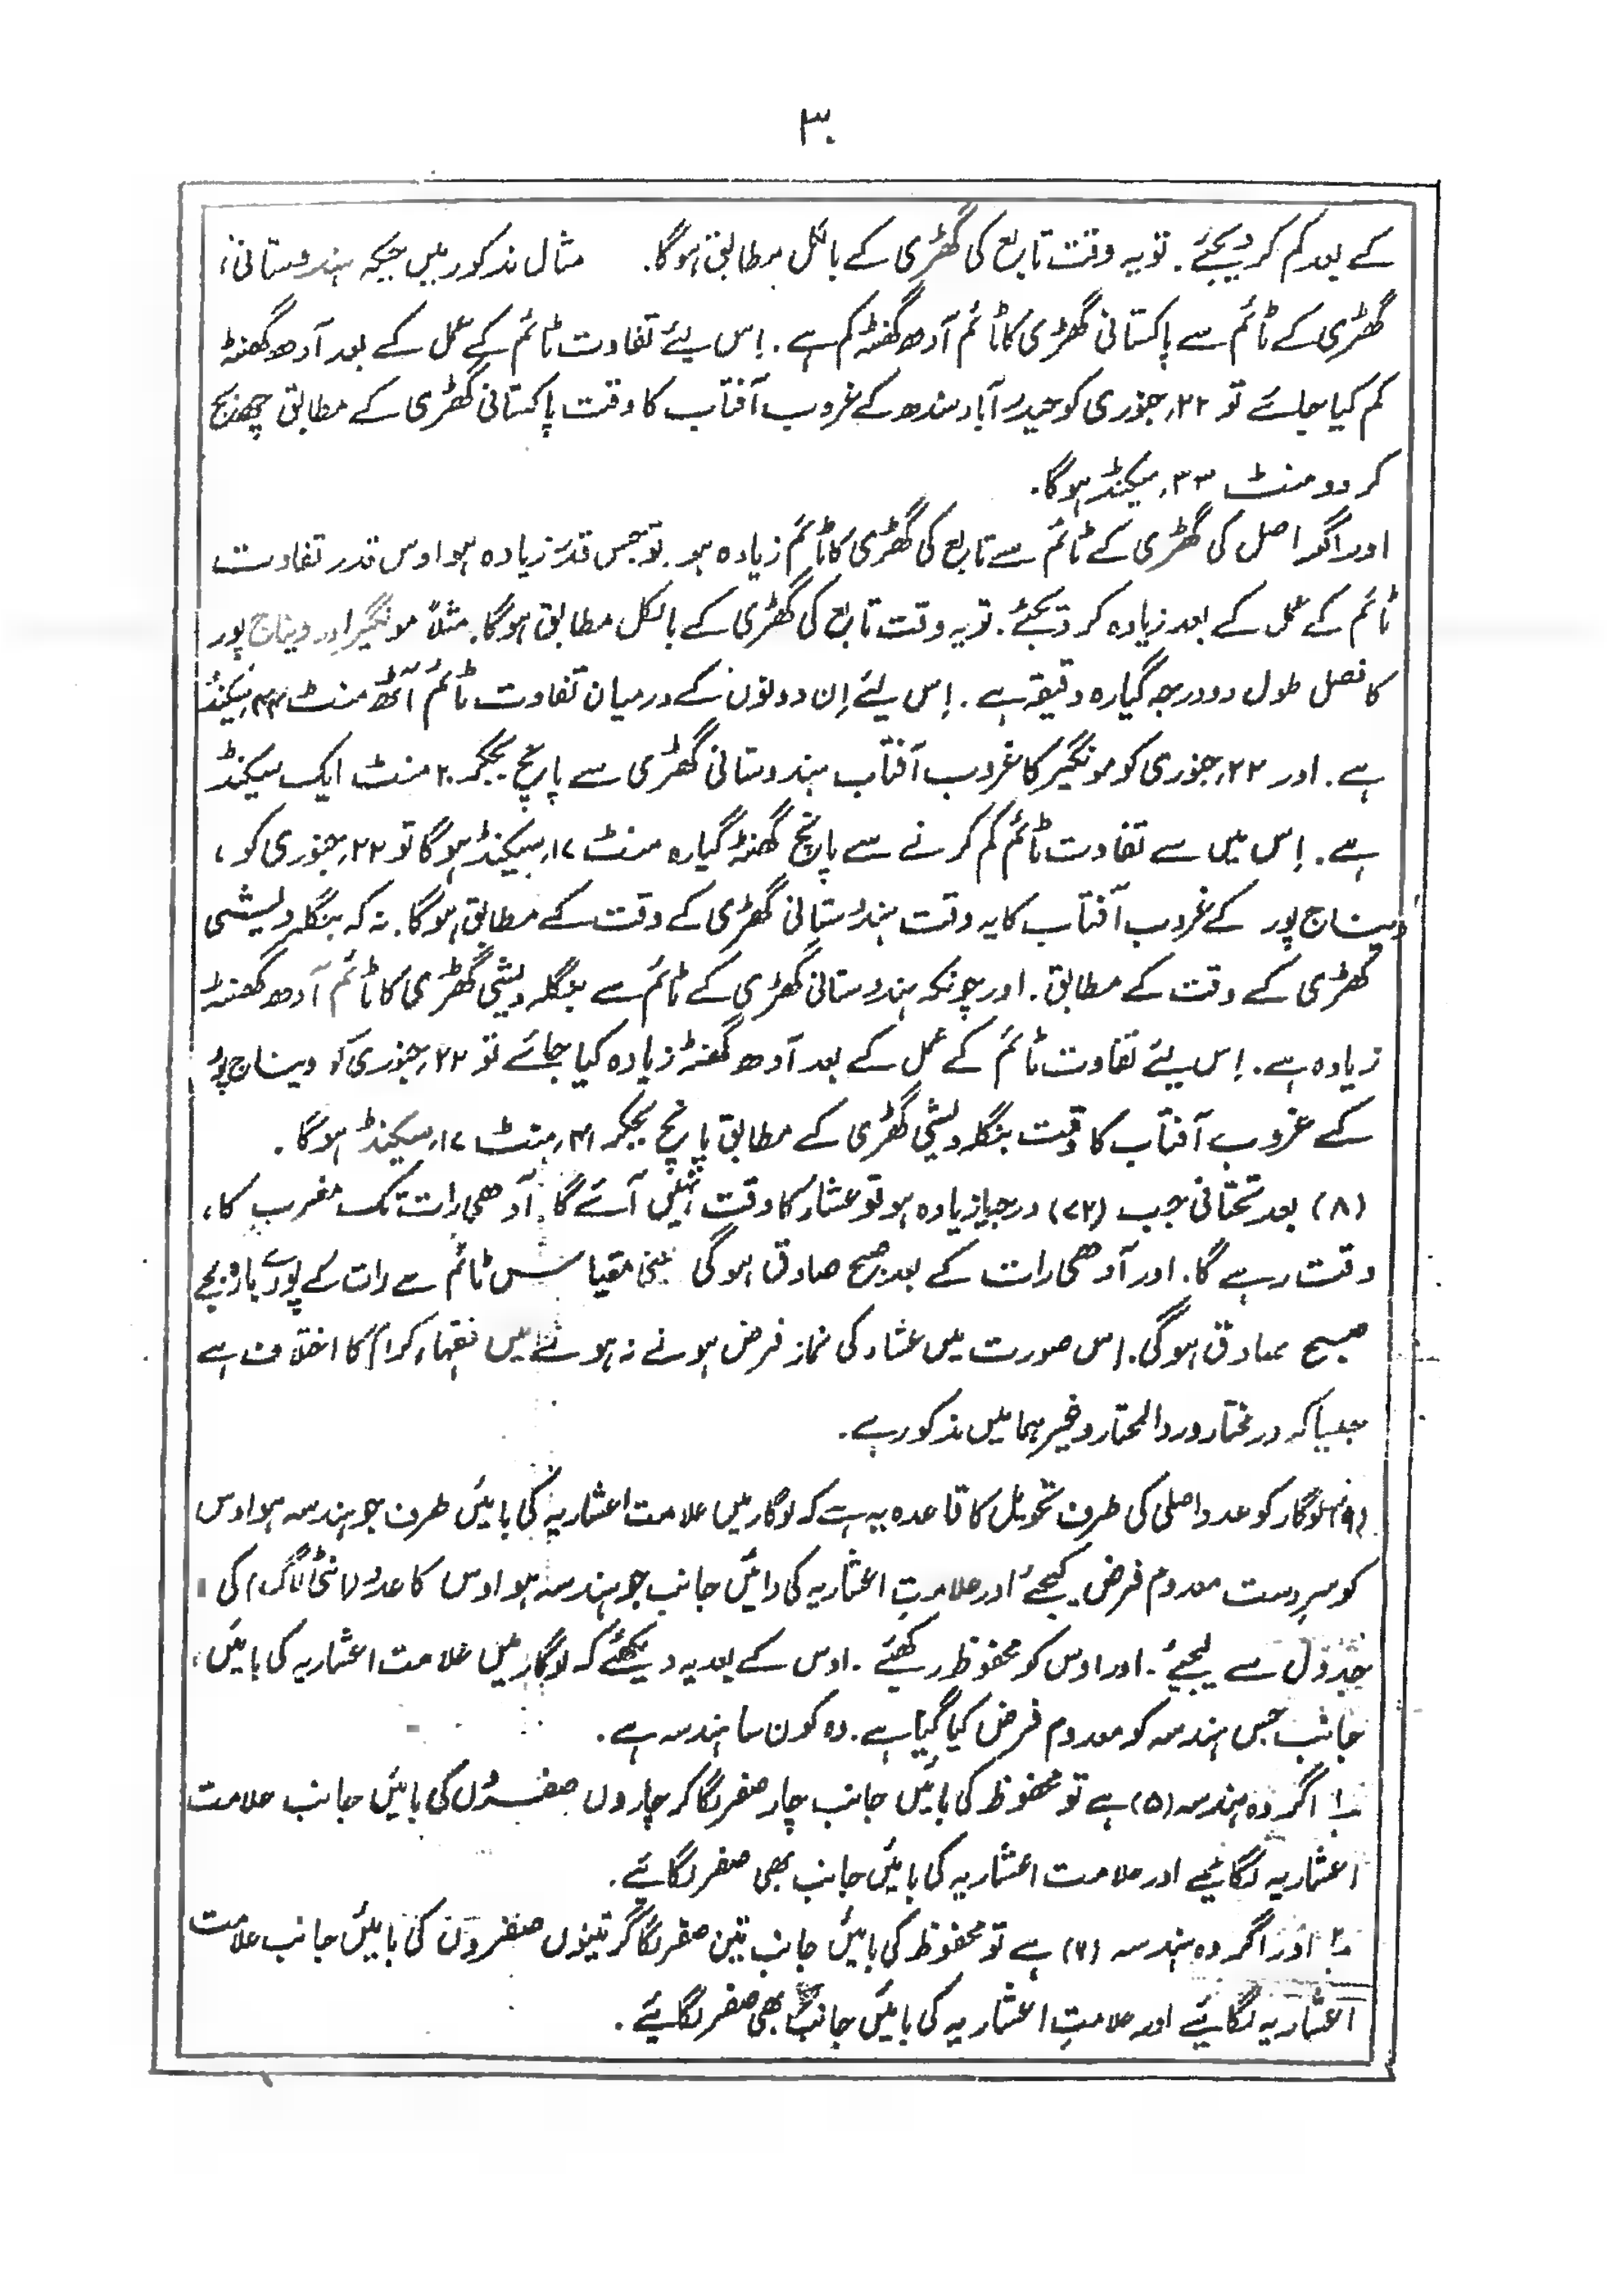 ۳۰
کے بعد کم کر دیجئے. تو یہ وقت تابع کی گھڑی کے بالکل مطابق ہوگا. مثال مذکور میں جبکہ ہندوستانی،
گھڑی کے ٹائم سے پاکستانی گھڑی کا ٹائم آدھ گھنٹہ کم ہے. اِس لیئے تفاوت ٹائم کے عمل کے بعد آدھ گھنٹہ
کم کیا جائے تو ۲۲؍جنوری کو حیدرآباد سندھ کے غروب آفتاب کا وقت پاکستانی گھڑی کے مطابق چھ بج
کر دو منٹ ۳۳؍سیکنڈ ہوگا.
اور اگر اصل کی گھڑی کے ٹائم سے تابع کی گھڑی کا ٹائم زیادہ ہو. تو جس قدر زیادہ ہو اوس قدر تفاوت
ٹائم کے عمل کے بعد زیادہ کر دیجئے. تو یہ وقت تابع کی گھڑی کے بالکل مطابق ہوگا. مثلاً مونگیر اور دیناج پور
کا فصل طول دو درجہ گیارہ دقیقہ ہے. اِس لیئے اِن دونوں کے درمیان تفاوت ٹائم آٹھ منٹ ۴۴؍سیکنڈ
ہے. اور ۲۲؍جنوری کو مونگیر کا غروب آفتاب ہندوستانی گھڑی سے پانچ بجکر ۲۰ منٹ ایک سیکنڈ
ہے. اِس میں سے تفاوت ٹائم کم کرنے سے پانچ گھنٹہ گیارہ منٹ ۱۷؍سیکنڈ ہوگا تو ۲۲؍جنوری کو،
دیناج پور کے غروب آفتاب کا یہ وقت ہندوستانی گھڑی کے وقت کے مطابق ہوگا. نہ کہ بنگلہ دیشی
گھڑی کے وقت کے مطابق. اور چونکہ ہندوستانی گھڑی کے ٹائم سے بنگلہ دیشی گھڑی کا ٹائم آدھ گھنٹہ
زیادہ ہے. اِس لیئے تفاوت ٹائم کے عمل کے بعد آدھ گھنٹہ زیادہ کیا جائے تو ۲۲؍جنوری کو دیناج پور
کے غروب آفتاب کا وقت بنگلہ دیشی گھڑی کے مطابق پانچ بجکر ۴۱؍منٹ ۱۷؍سیکنڈ ہوگا.
(۸) بعد تحتانی جب (۷۲) درجہ یا زیادہ ہو تو عشار کا وقت نہیں آئے گا. آدھی رات تک مغرب کا،
وقت رہے گا. اور آدھی رات کے بعد صبح صادق ہوگی یعنی مقیاس ٹائم سے رات کے پورے بارہ بجے
صبح صادق ہوگی. اِس صورت میں عشاء کی نماز فرض ہونے نہ ہونے میں فقہاء کرام کا اختلاف ہے
جیسا کہ در مختار و رد المحتار وغیرہما میں مذکور ہے.
(۹) لوگار کو عدد اصلی کی طرف تحویل کا قاعدہ یہ ہے کہ لوگار میں علامت اعشاریہ کی بائیں طرف جو ہندسہ ہو اوس
کو سرِ دست معدوم فرض کیجئے اور علامتِ اعشاریہ کی دائیں جانب جو ہندسہ ہو اوس کا عدد (انٹی لاگ) کی
جدول سے لیجئے. اور اوس کو محفوظ رکھئے. اوس کے بعد یہ دیکھئے کہ لوگار میں علامت اعشاریہ کی بائیں،
جانب جس ہندسہ کو معدوم فرض کیا گیا ہے. وہ کون سا ہندسہ ہے.
۱؎ اگر وہ ہندسہ (۵) ہے تو محفوظ کی بائیں جانب چار صفر لگا کر چاروں صفروں کی بائیں جانب علامت
اعشاریہ لگائیے اور علامت اعشاریہ کی بائیں جانب بھی صفر لگائیے.
۲؎ اور اگر وہ ہندسہ (۶) ہے تو محفوظ کی بائیں جانب تین صفر لگا کر تینوں صفروں کی بائیں جانب علامت
اعشاریہ لگائیے اور علامتِ اعشاریہ کی بائیں جانب بھی صفر لگائیے.